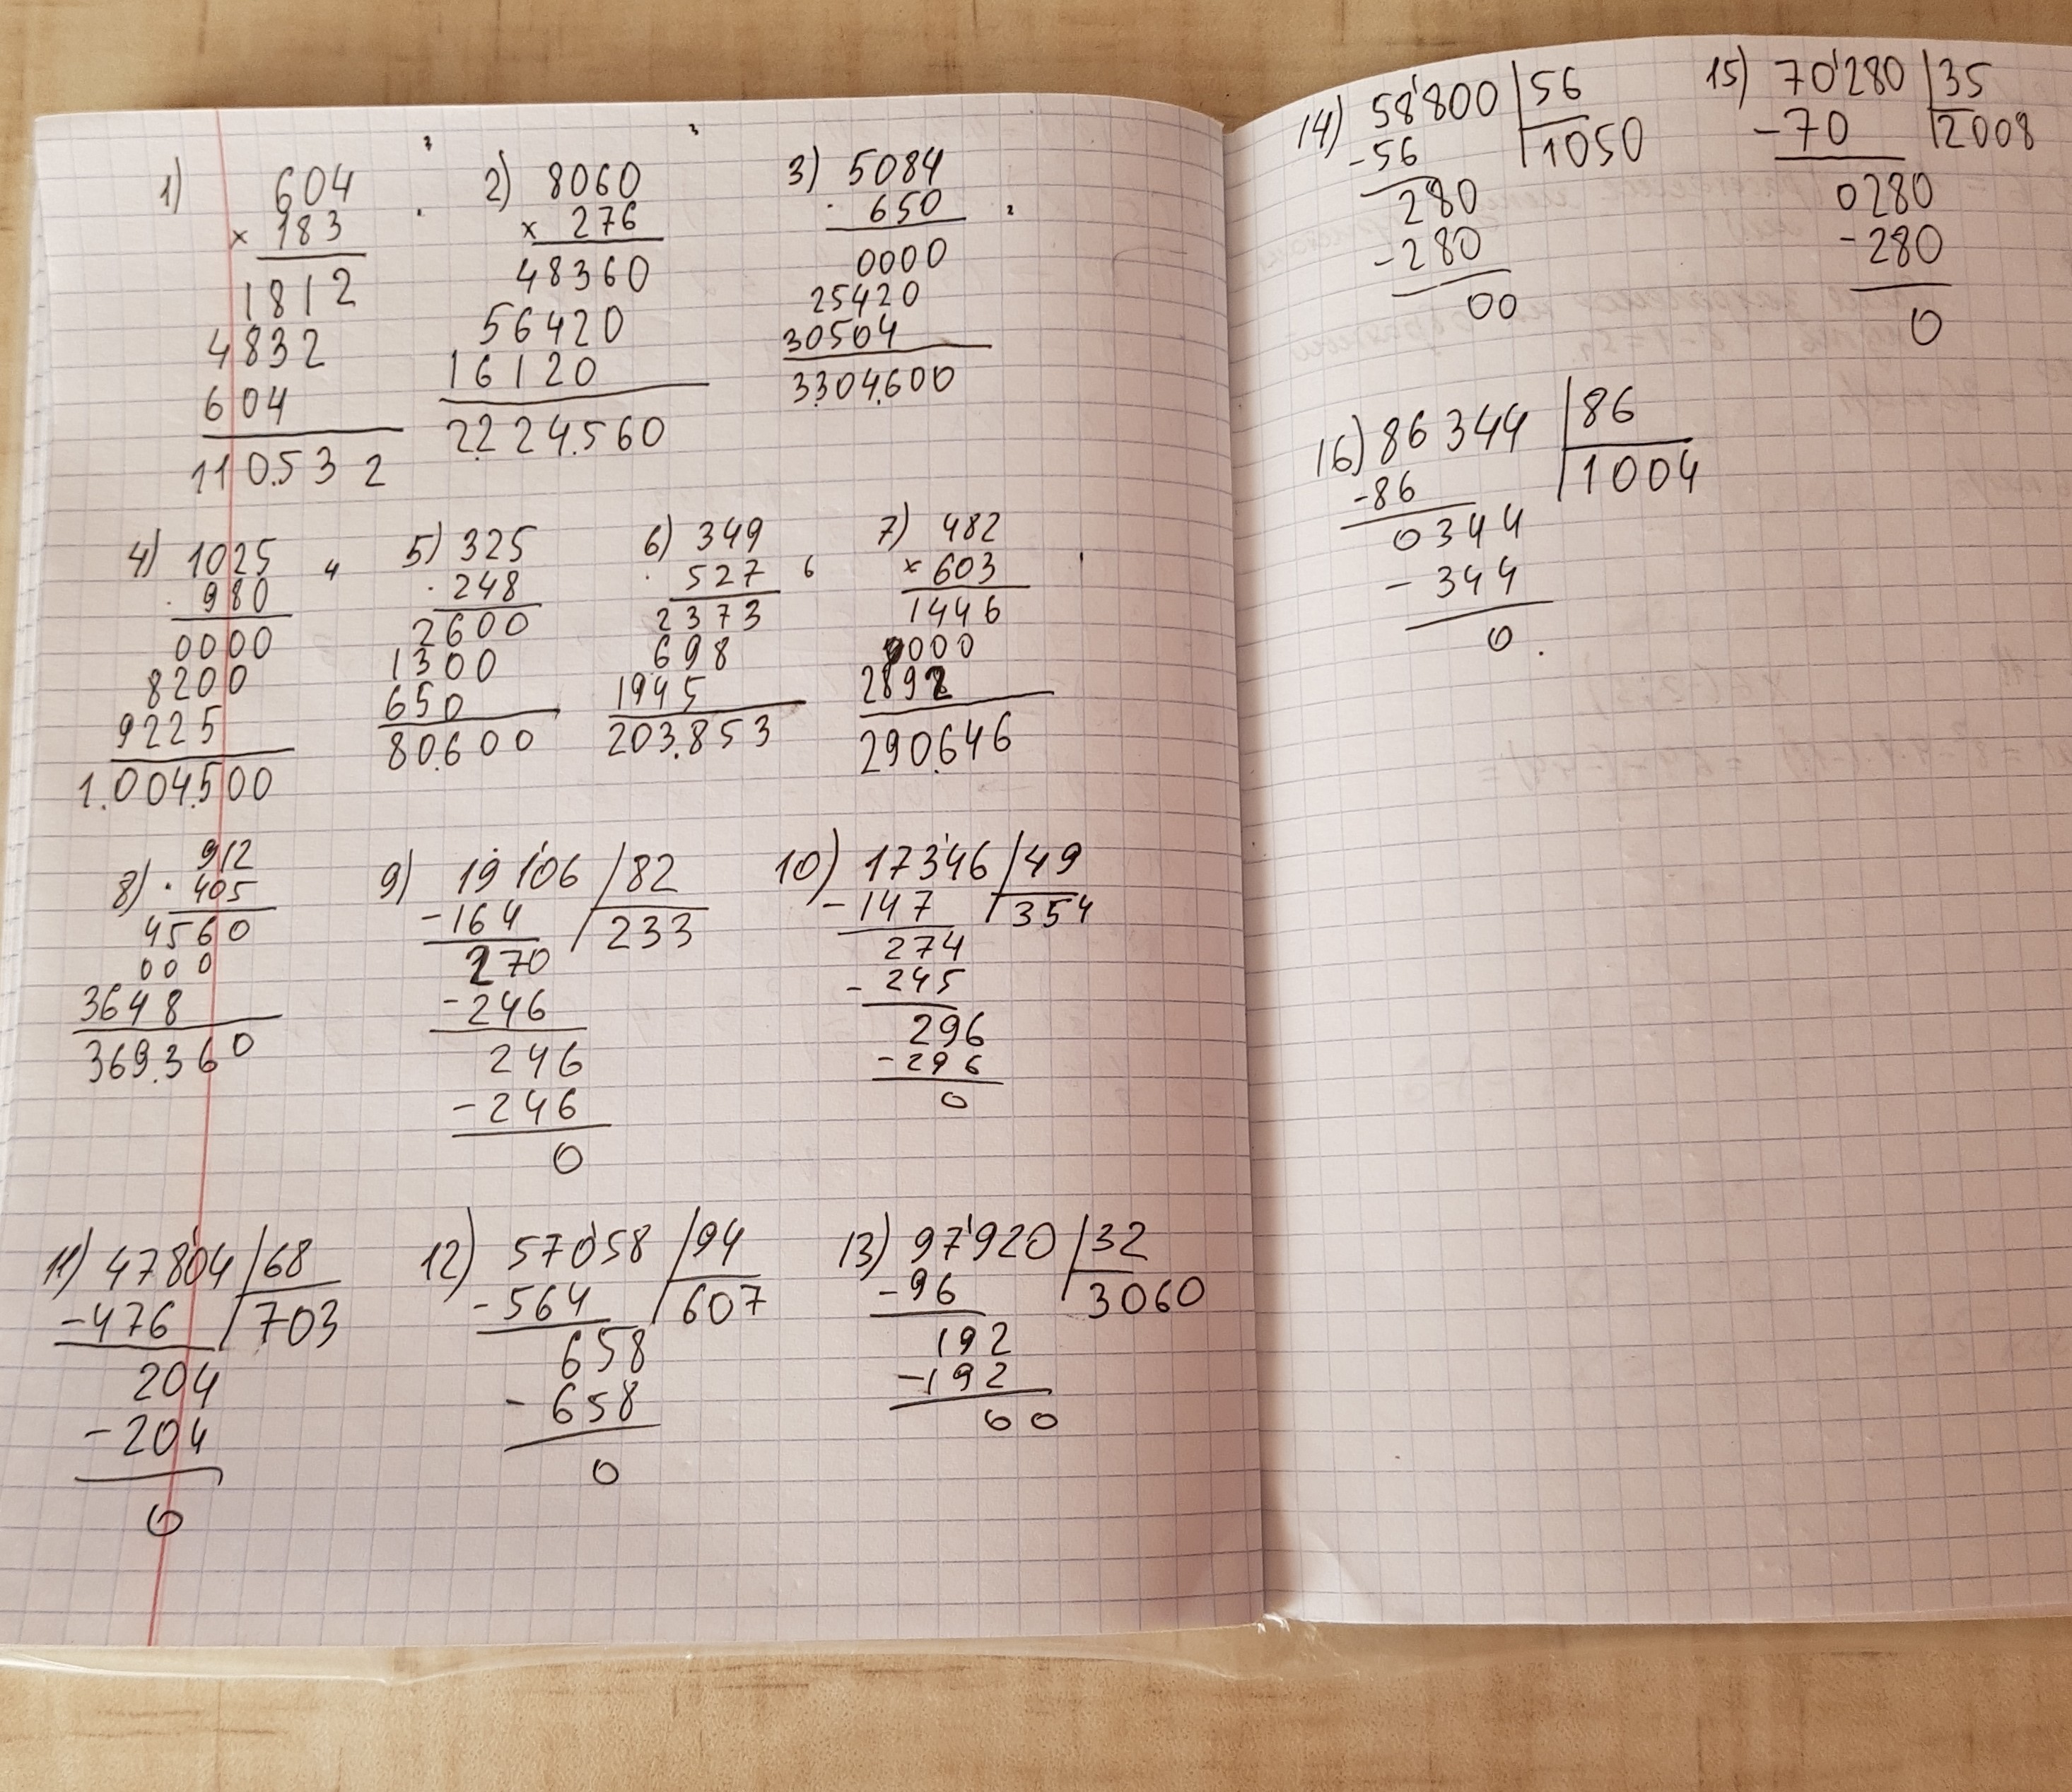 1) 604
× 183
1812
4832
604
110.532
2) 8060
× 276
48360
56420
16120
2.224.560
3) 5084
· 650
0000
25420
30504
3.304.600
4) 1025
· 980
0000
8200
9225
1.004.500
5) 325
· 248
2600
1300
650
80.600
6) 349
· 527
2373
698
1945
203.853
7) 482
× 603
1446
0000
2892
290.646
8) 912
· 405
4560
000
3648
369.360
9) 19'106 82
-164 233
270
-246
246
-246
0
10) 173'46 49
-147 354
274
-245
296
-296
0
11) 478'04 68
-476 703
204
-204
0
12) 570'58 94
-564 607
658
-658
0
13) 97'920 32
-96 3060
192
-192
00
14) 58'800 56
-56 1050
280
-280
00
15) 70'280 35
-70 2008
0280
-280
0
16) 86344 86
-86 1004
0344
-344
0.